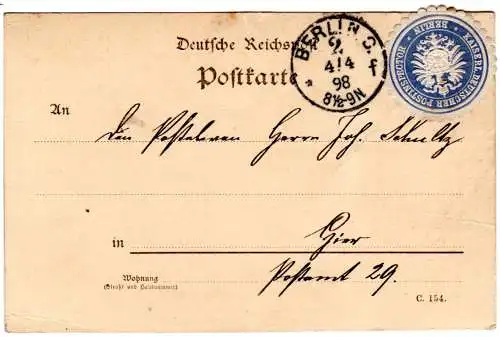 Deutsche Reichspost
Postkarte
BERLIN C.
2
4/4
98
8½-9N
* f
KAISERL. DEUTSCHER POSTINSPECTOR * BERLIN *
An
den Posteleven Herrn Joh. Schultz
in
Hier
Postamt 29.
Wohnung
(Straße und Hausnummer)
C. 154.